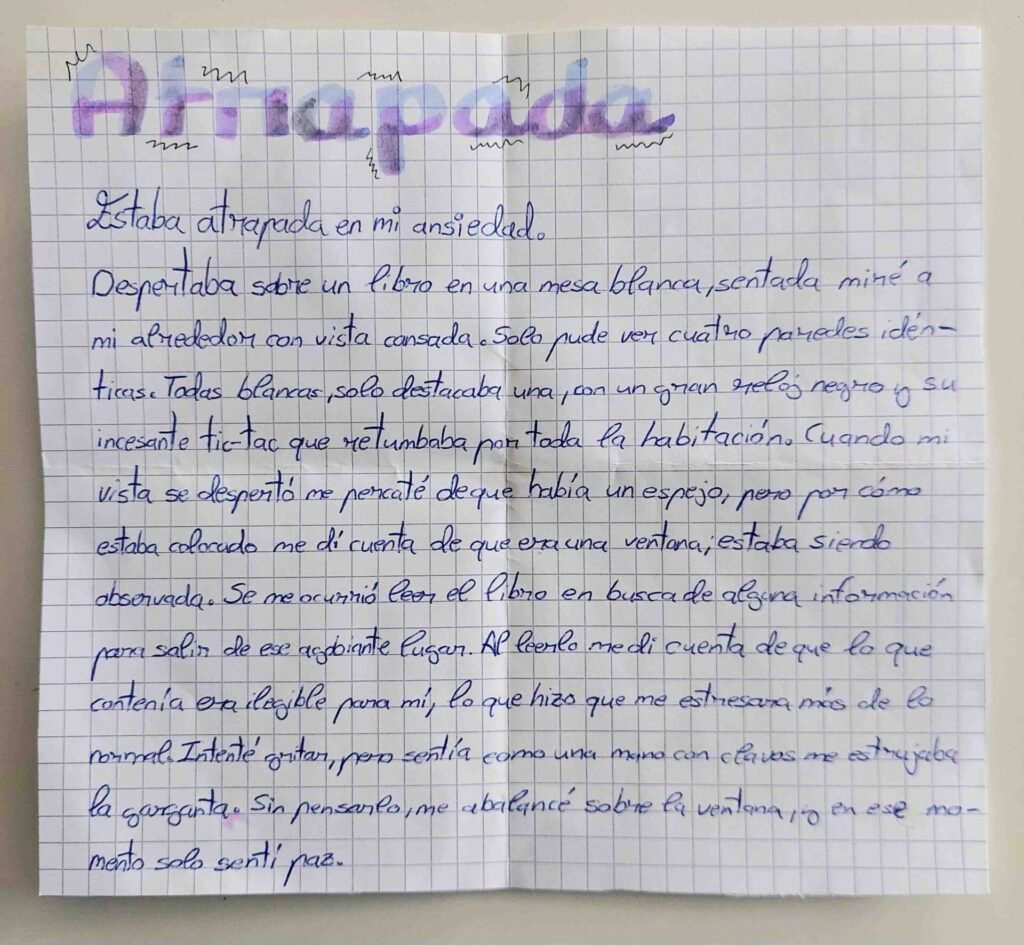 Atrapada
Estaba atrapada en mi ansiedad.
Despertaba sobre un libro en una mesa blanca, sentada miré a
mi alrededor con vista cansada. Solo pude ver cuatro paredes idén-
ticas. Todas blancas, solo destacaba una, con un gran reloj negro y su
incesante tic-tac que retumbaba por toda la habitación. Cuando mi
vista se despertó me percaté de que había un espejo, pero por cómo
estaba colocado me di cuenta de que era una ventana; estaba siendo
observada. Se me ocurrió leer el libro en busca de alguna información
para salir de ese agobiante lugar. Al leerlo me di cuenta de que lo que
contenía era ilegible para mí, lo que hizo que me estresara más de lo
normal. Intenté gritar, pero sentía como una mano con clavos me estrujaba
la garganta. Sin pensarlo, me abalancé sobre la ventana, y en ese mo-
mento solo sentí paz.